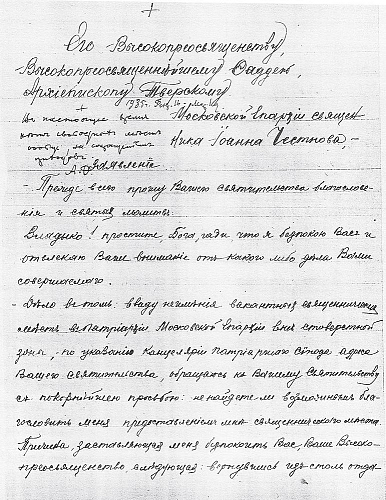 +
Его Высокопреосвященству,
Высокопреосвященнѣйшему Фаддею,
Архіепископу Тверскому.
+
Въ настоящее время
Московской Епархіи священ
ника Іоанна Честнова, -
Заявленіе
- Прежде всего прошу Вашего святительства благослове-
нія и святых молитвъ.
Владыко! простите, Бога ради что я безпокою Васъ и
отвлекаю Ваше вниманіе отъ какого либо дѣла Вами
совершаемаго.
- Дѣло въ томъ: ввиду неимѣнія вакантныхъ священнических
мѣстъ въ Патріархіи Московской Епархіи внѣ стоверстной
зоны, - по указанію Канцеляріи Патріаршаго Сѵнода адреса
Вашего святительства, обращаюсь къ Вашему Святительству
съ покорнѣйшею просьбою: не найдете-ли возможнымъ бла-
гословить меня предоставленіем мнѣ священнического мѣста.
Причина, заставляющая меня безпокоить Васъ, Ваше Высоко-
преосвященство, слѣдующая: вернувшись изъ столь отда-